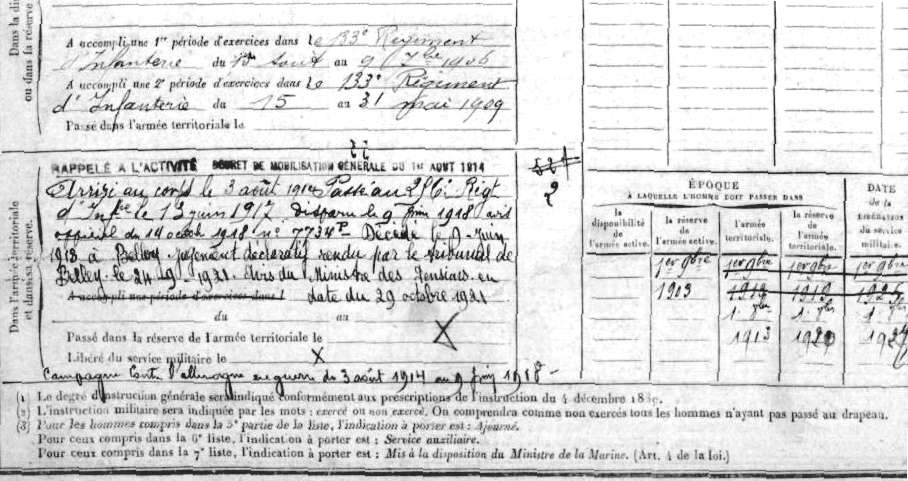 Dans la
ou dans la réserve
A accompli une 1re période d'exercices dans le 133e Régiment
d'Infanterie du août au 9 7bre 1906
A accompli une 2e période d'exercices dans le 133e Régiment
d'Infanterie du 15 au 31 mai 1909
Passé dans l'armée territoriale le
Dans l'armée territoriale
et dans sa réserve.
RAPPELÉ A L'ACTIVITÉ DÉCRET DE MOBILISATION GÉNÉRALE DU 1er AOUT 1914
Arrivé au corps le 3 août 1914 Passé au Régt
d'Infie le 13 juin 1917 Disparu le 9 Juin 1918 avis
officiel du 14 octob 1918 n° 7734P Décédé le 9 Juin
1918 à Belloy jugement déclaratif rendu par le tribunal de
Belley le 24-9-1921 Avis du Ministre des Pensions en
A accompli une période d'exercices dans l date du 29 octobre 1921
du au
Passé dans la réserve de l'armée territoriale le X
Libéré du service militaire le X
Campagne contre l'allemagne en guerre du 3 août 1914 au 9 Juin 1918 -
ÉPOQUE
À LAQUELLE L'HOMME DOIT PASSER DANS
DATE
de la
LIBÉRATION
du service
militaire.
la disponibilité de l'armée active.
la réserve de l'armée active.
l'armée territoriale.
la réserve de l'armée territoriale.
1er 9bre 1er 9bre 1er 9bre 1er 9bre
1903 1913 1919 1926
1. 1.
1913 1920
(1) Le degré d'instruction générale sera indiqué conformément aux prescriptions de l'instruction du 4 décembre 1889.
(2) L'instruction militaire sera indiquée par les mots : exercé ou non exercé. On comprendra comme non exercés tous les hommes n'ayant pas passé au drapeau.
(3) Pour les hommes compris dans la 5e partie de la liste, l'indication à porter est : Ajourné.
Pour ceux compris dans la 6e liste, l'indication à porter est : Service auxiliaire.
Pour ceux compris dans la 7e liste, l'indication à porter est : Mis à la disposition du Ministre de la Marine. (Art. 4 de la loi.)